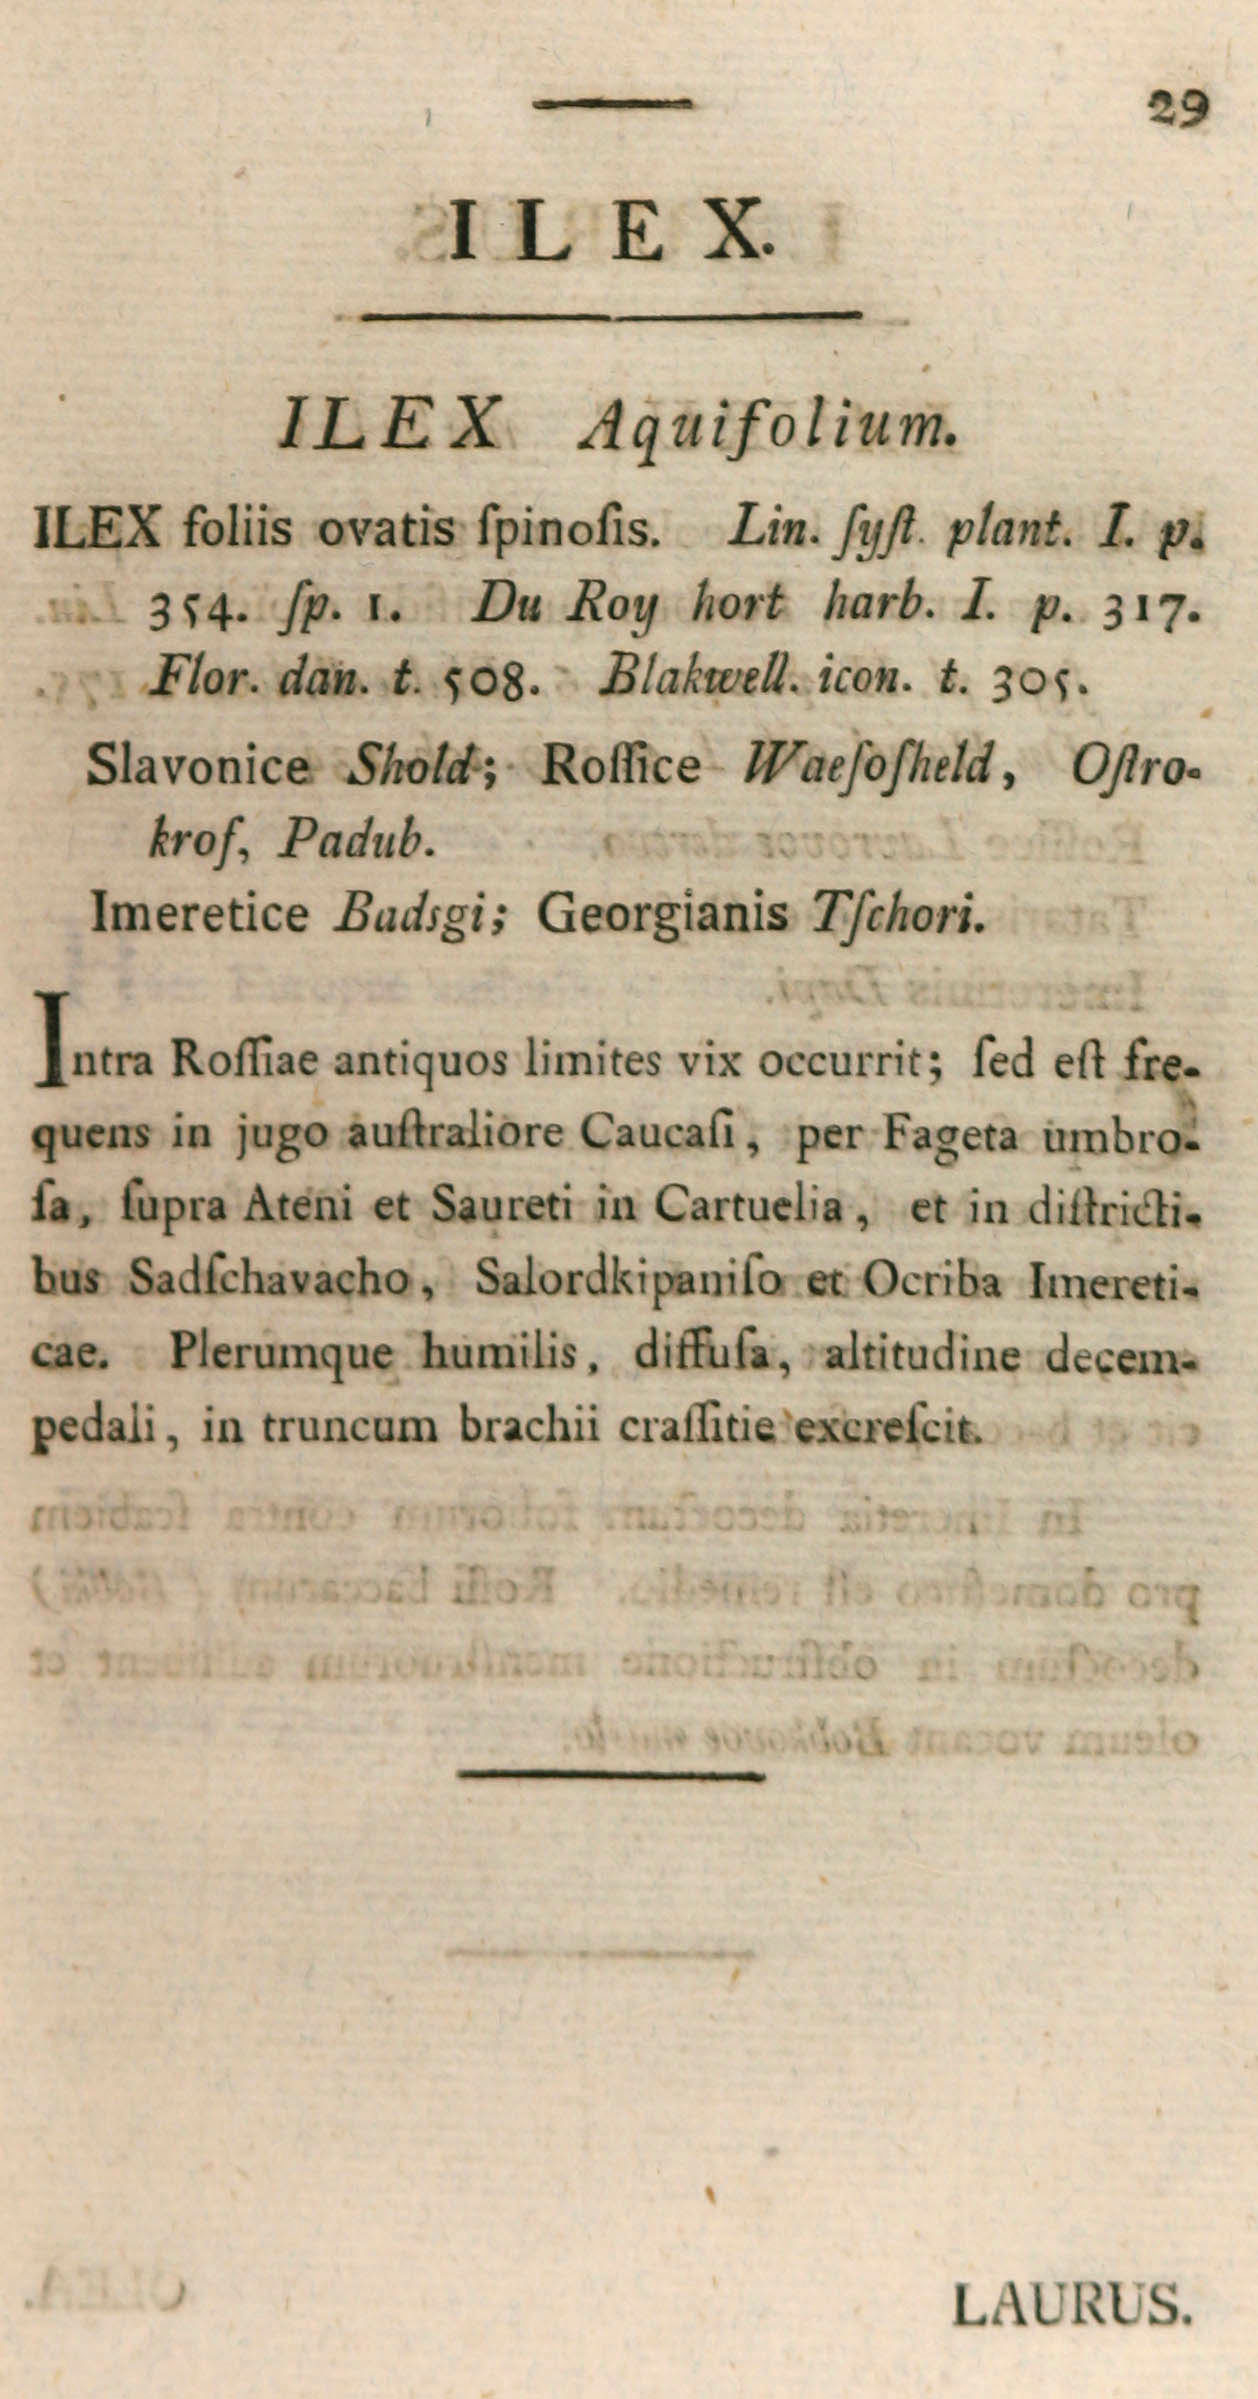 29
ILEX.
ILEX Aquifolium.
ILEX foliis ovatis ſpinoſis. Lin. ſyſt. plant. I. p.
354. ſp. 1. Du Roy hort harb. I. p. 317.
Flor. dan. t. 508. Blakwell. icon. t. 305.
Slavonice Shold; Roſſice Waeſoſheld, Oſtro-
krof, Padub.
Imeretice Badsgi; Georgianis Tſchori.
Intra Roſſiae antiquos limites vix occurrit; ſed eſt fre-
quens in jugo auſtraliore Caucaſi, per Fageta umbro-
ſa, ſupra Ateni et Saureti in Cartuelia, et in diſtricti-
bus Sadſchavacho, Salordkipaniſo et Ocriba Imereti-
cae. Plerumque humilis, diffuſa, altitudine decem-
pedali, in truncum brachii craſſitie excreſcit.
LAURUS.